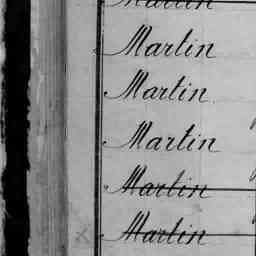 Martin
Martin
Martin.
Martin
Martin
Martin